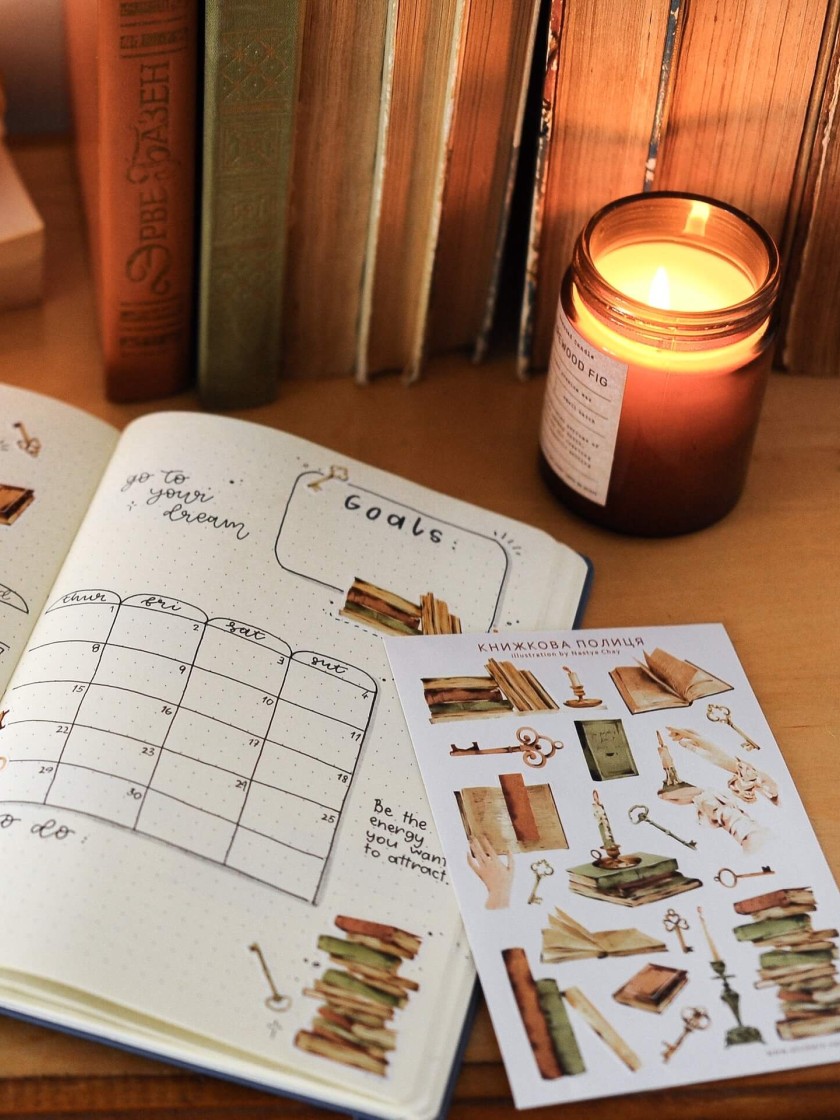 ЭРВЕ БАЗЕН
WOOD FIG
go to
your
dream
Goals:
thur fri sat sut
1 2 3 4
8 9 10 11
15 16 17 18
22 23 24 25
29 30
o do:
Be the
energy
you want
to attract.
КНИЖКОВА ПОЛИЦЯ
illustration by Nastya Chay